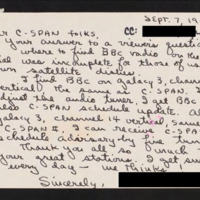 SEPT. 7, 19
CC:
r C-SPAN folks,
Your answer to a viewer's question
where to find BBC radio on the
was incomplete for those of u
own satellite dishes.
I find BBC on Galaxy 3, channel
vertical, the same as C-SPAN. I
just the audio tuner. I get BBC
C-SPAN schedule update. Al
Galaxy 3, channel 14 vertical same
C-SPAN II. I can receive C-SPAN
schedule advisory by fine tun
Thank you all so much for
your great stations. I get su
every day - me thinks!
Sincerely,